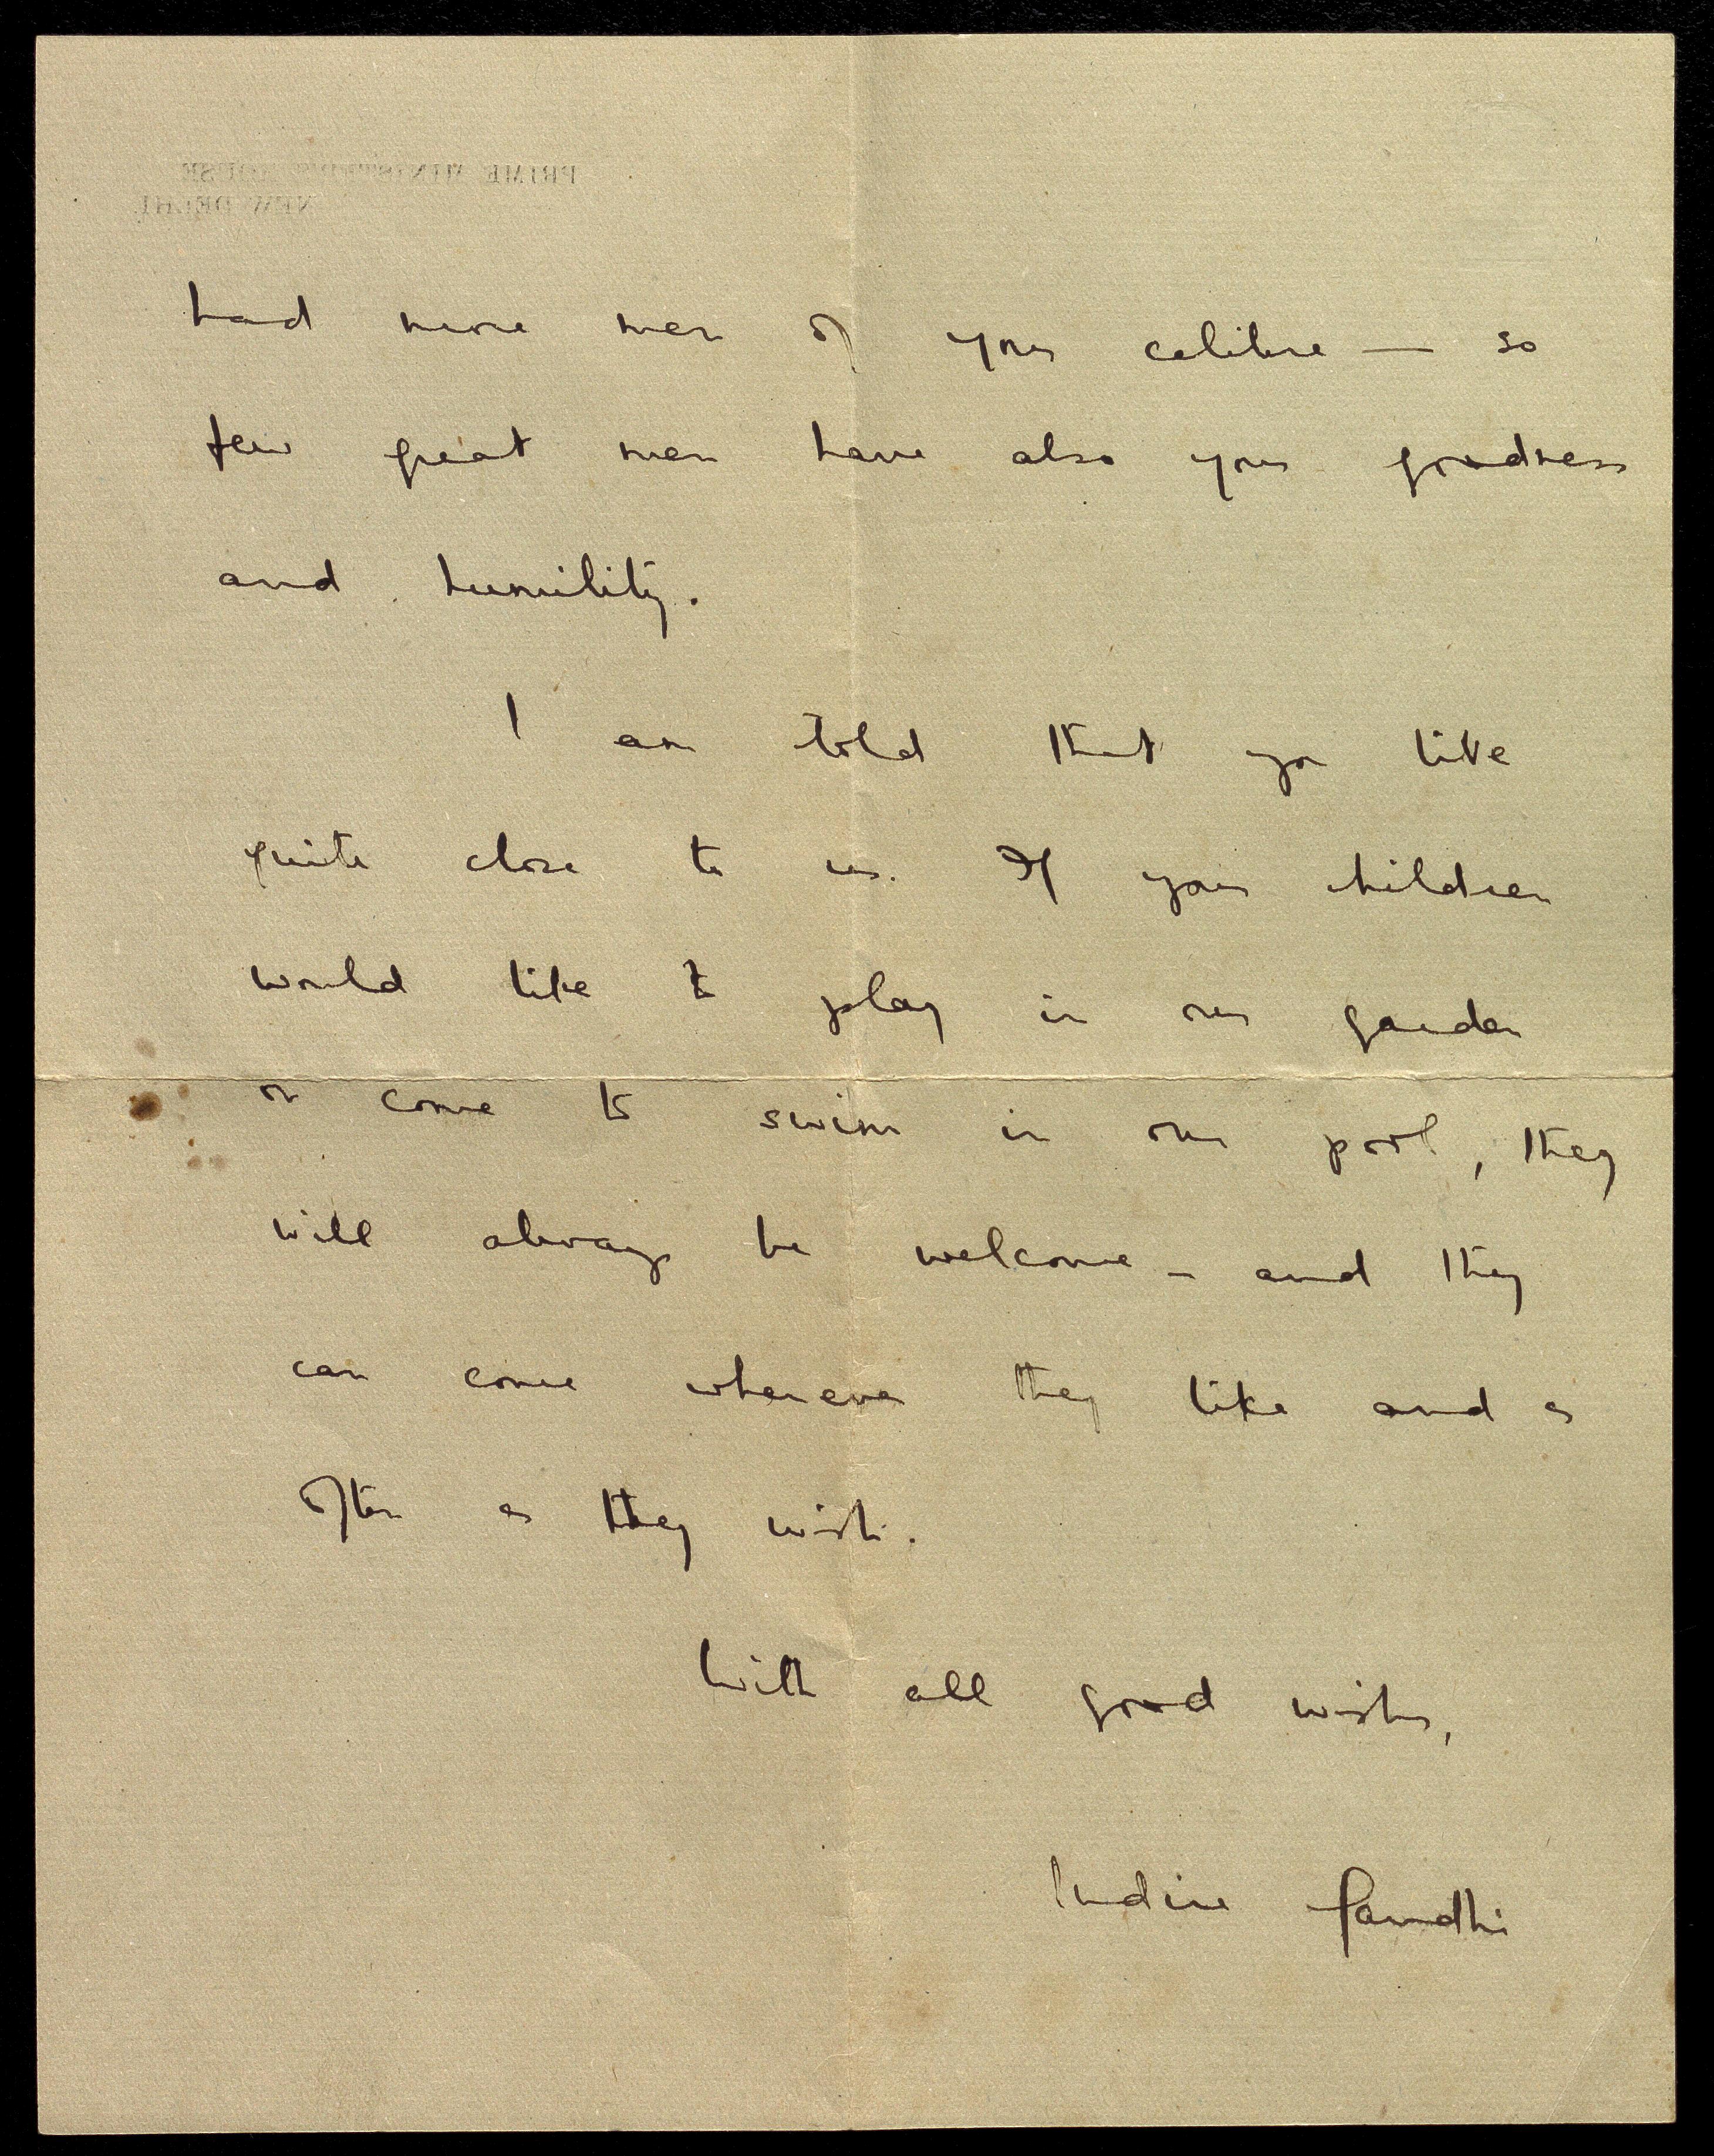 PRIME MINISTER'S HOUSE
NEW DELHI
had more men of your calibre — so
few great men have also your goodness
and humility.
I am told that you live
quite close to us. If your children
would like to play in our garden
or come to swim in our pool, they
will always be welcome - and they
can come whenever they like and as
often as they wish.
With all good wishes,
Indira Gandhi